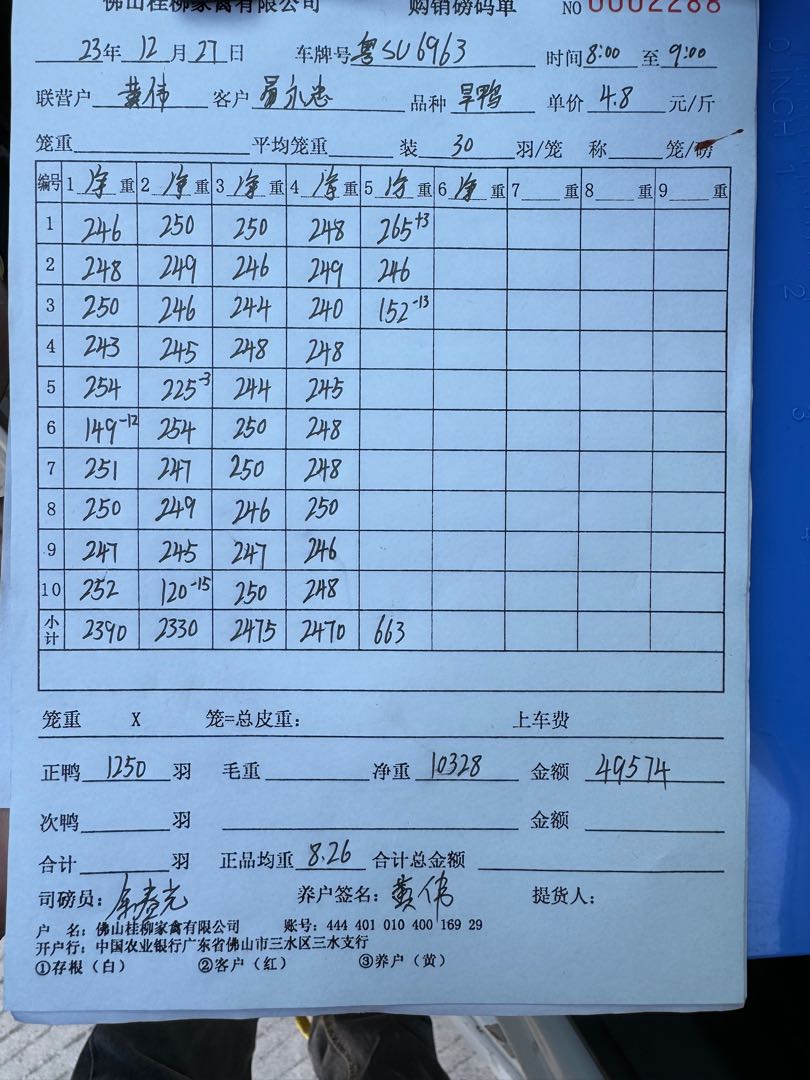 佛山桂柳家禽有限公司 购销磅码单 NO 0002288
23年 12月 27日 车牌号 粤SU6963 时间 8:00 至 9:00
联营户 黄伟 客户 易永忠 品种 旱鸭 单价 4.8 元/斤
笼重 平均笼重 装 30 羽/笼 称 笼/磅
编号 1 净 重 2 净 重 3 净 重 4 净 重 5 净 重 6 净 重 7 重 8 重 9 重
1 246 250 250 248 265+3
2 248 249 246 249 246
3 250 246 244 240 152-13
4 243 245 248 248
5 254 225-3 244 245
6 149-12 254 250 248
7 251 247 250 248
8 250 249 246 250
9 247 245 247 246
10 252 120-15 250 248
小计 2390 2330 2475 2470 663
笼重 X 笼=总皮重: 上车费
正鸭 1250 羽 毛重 净重 10328 金额 49574
次鸭 羽 金额
合计 羽 正品均重 8.26 合计总金额
司磅员: 养户签名: 黄伟 提货人:
户 名: 佛山桂柳家禽有限公司 账号: 444 401 010 400 169 29
开户行: 中国农业银行广东省佛山市三水区三水支行
①存根(白) ②客户(红) ③养户(黄)
0 INCH 1
2
3